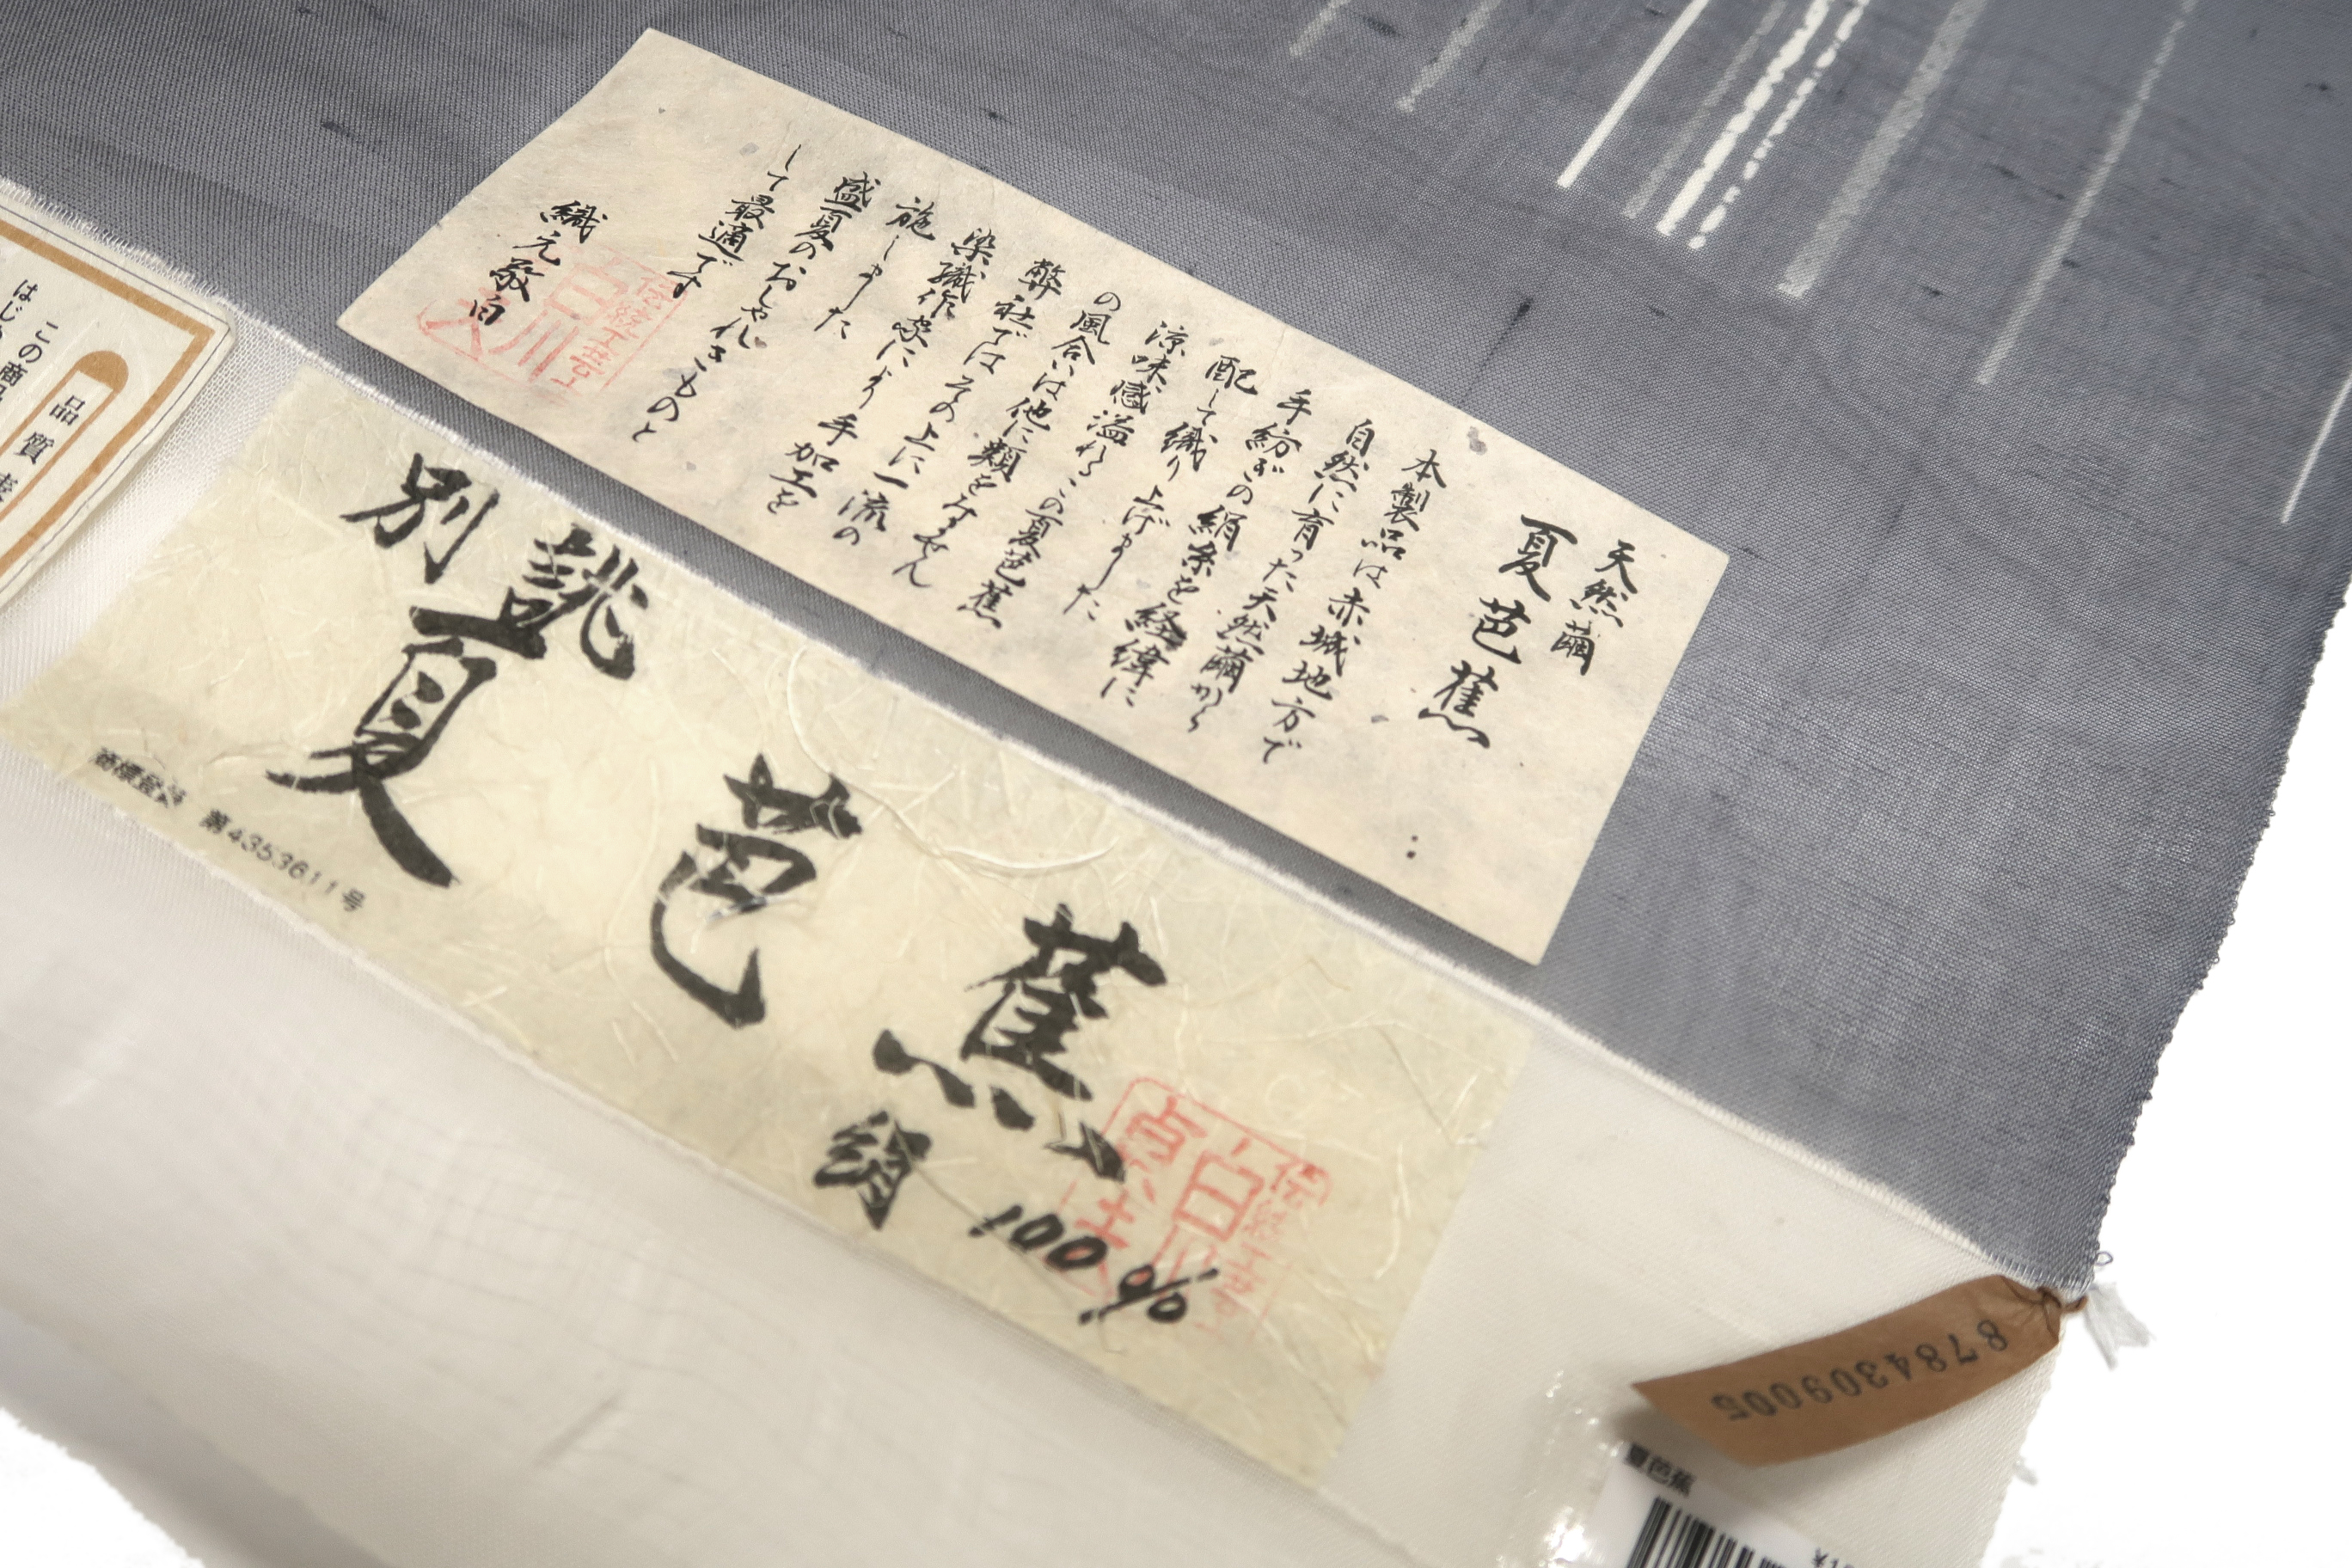 天然繭
夏芭蕉
本製品は赤城地方で
自然に育った天然繭から
手紡ぎの絹糸を経緯に
配して織り上げました
涼味感溢れるこの夏芭蕉
の風合いは他に類をみません
弊社ではその上に一流の
染織作家により手加工を
施しました
盛夏のおしゃれきものと
して最適です
織元敬白
伝統工芸士
白川
別誂
夏芭蕉
絹100%
商標登録 第4353611号
伝統工芸
白川
品質表
この商品
はじ
8784309005
夏芭蕉